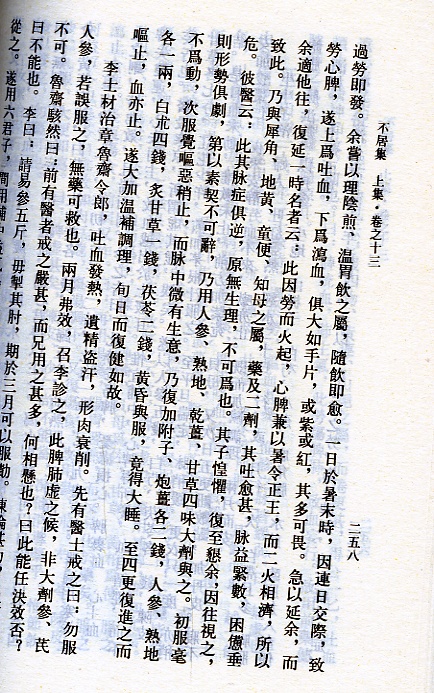 不居集　上集·卷之十三
二五八
過勞即發。余嘗以理陰煎、温胃飲之屬，隨飲即愈。一日於暑末時，因連日交際，致
勞心脾，遂上爲吐血，下爲瀉血，俱大如手片，或紫或紅，其多可畏。急以延余，而
余適他往，復延一時名者云：此因勞而火起，心脾兼以暑令正王，而二火相濟，所以
致此。乃與犀角、地黄、童便、知母之屬，藥及二劑，其吐愈甚，脉益緊數，困憊垂
危。彼醫云：此其脉症俱逆，原無生理，不可爲也。其子惶懼，復至懇余，因往視之，
則形勢俱劇，第以素契不可辭，乃用人參、熟地、乾薑、甘草四味大劑與之。初服毫
不爲動，次服覺嘔惡稍止，而脉中微有生意，乃復加附子、炮薑各二錢，人參、熟地
各一兩，白朮四錢，炙甘草一錢，茯苓二錢，黄昏與服，竟得大睡。至四更復進之而
嘔止，血亦止。遂大加温補調理，旬日而復健如故。
李士材治章魯齋令郎，吐血發熱，遺精盗汗，形肉衰削。先有醫士戒之曰：勿服
人參，若誤服之，無藥可救也。兩月弗效，召李診之，此脾肺虚之候，非大劑參、芪
不可。魯齋駭然曰：前有醫者戒之嚴甚，而兄用之甚多，何相懸也？曰此能任決效否？
曰不能也。李曰：請易參五斤，毋掣其肘，期於三月可以報功。
從之。遂用六君子，間用補中